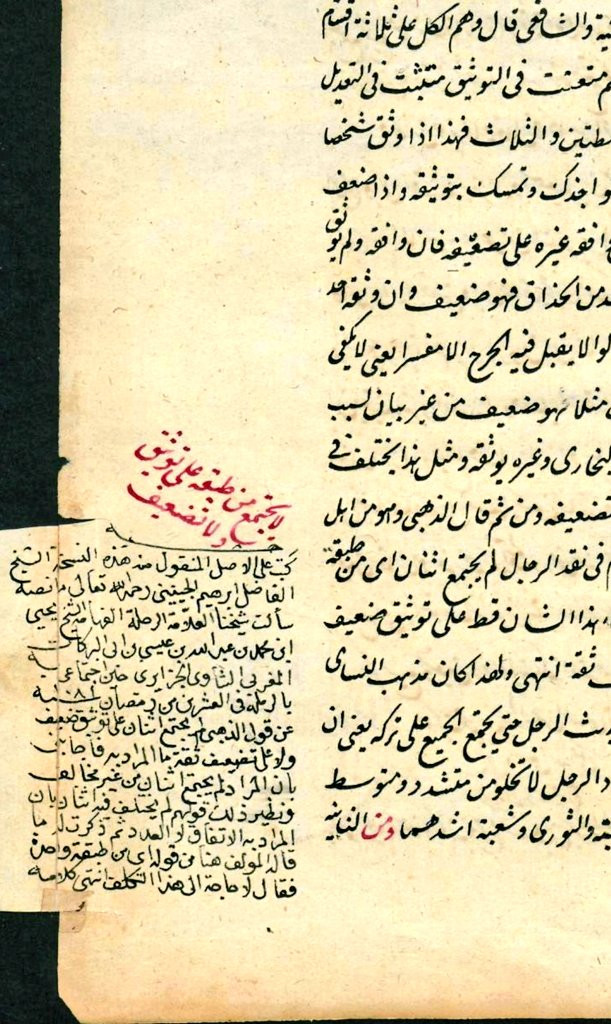 ية والشافعى قال وهم الكل على ثلاثة اقسام
م متعنت فى التوثيق متثبت فى التعديل
لطتين والثلاث فهذا اذا وثق شخصا
واجذك وتمسك بتوثيقه واذا ضعف
وافقه غيره على تضعيفه فان وافقه ولم يوثق
د من الحذاق فهو ضعيف وان وثقه احد
لوا لا يقبل فيه الجرح الا مفسرا يعنى لا يكفى
مثلا هو ضعيف من غير بيان لسبب
لبخارى وغيره يوثقه ومثل هذا يختلف فى
ضعيفه ومن ثم قال الذهبى وهو من اهل
م فى نقد الرجال لم يجتمع اثنان اى من طبقة
هذا الشان قط على توثيق ضعيف
ثقة انتهى ولهذا كان مذهب النساى
يث الرجل حتى يجتمع الجميع على تركه يعنى ان
د الرجل لا تخلو من متشدد ومتوسط
ية والثورى وشعبة اشدهما ومن الثانية
لا يجتمع من طبقه على توثيق
ولا تضعيف
كتب على الاصل المنقول منه هذه النسخة الشيخ
الفاضل ابرهيم الجينينى رحمه الله تعالى ما نصه
سألت شيخنا العلامة الرحلة الفهامة الشيخ يحيى
ابن محمد بن عبد الله بن عيسى بن ابى البركات
المغربى الشاوى الجزايرى حين اجتماعى به
بالرملة فى العشرين من رمضان ١٠٨١ سنة
عن قول الذهبى لم يجتمع اثنان على توثيق ضعيف
ولا على تضعيف ثقة ما المراد به فاجابنى
بان المراد لم يجتمع اثنان من غير مخالف
ونظير ذلك قولهم لم يختلف فيه اثنان بان
المراد به الاتفاق لا العدد ثم ذكرت له ما
قاله المولف هنا من قوله اى من طبقة واحدة
فقال لا حاجة الى هذا التكلف انتهى كلامه